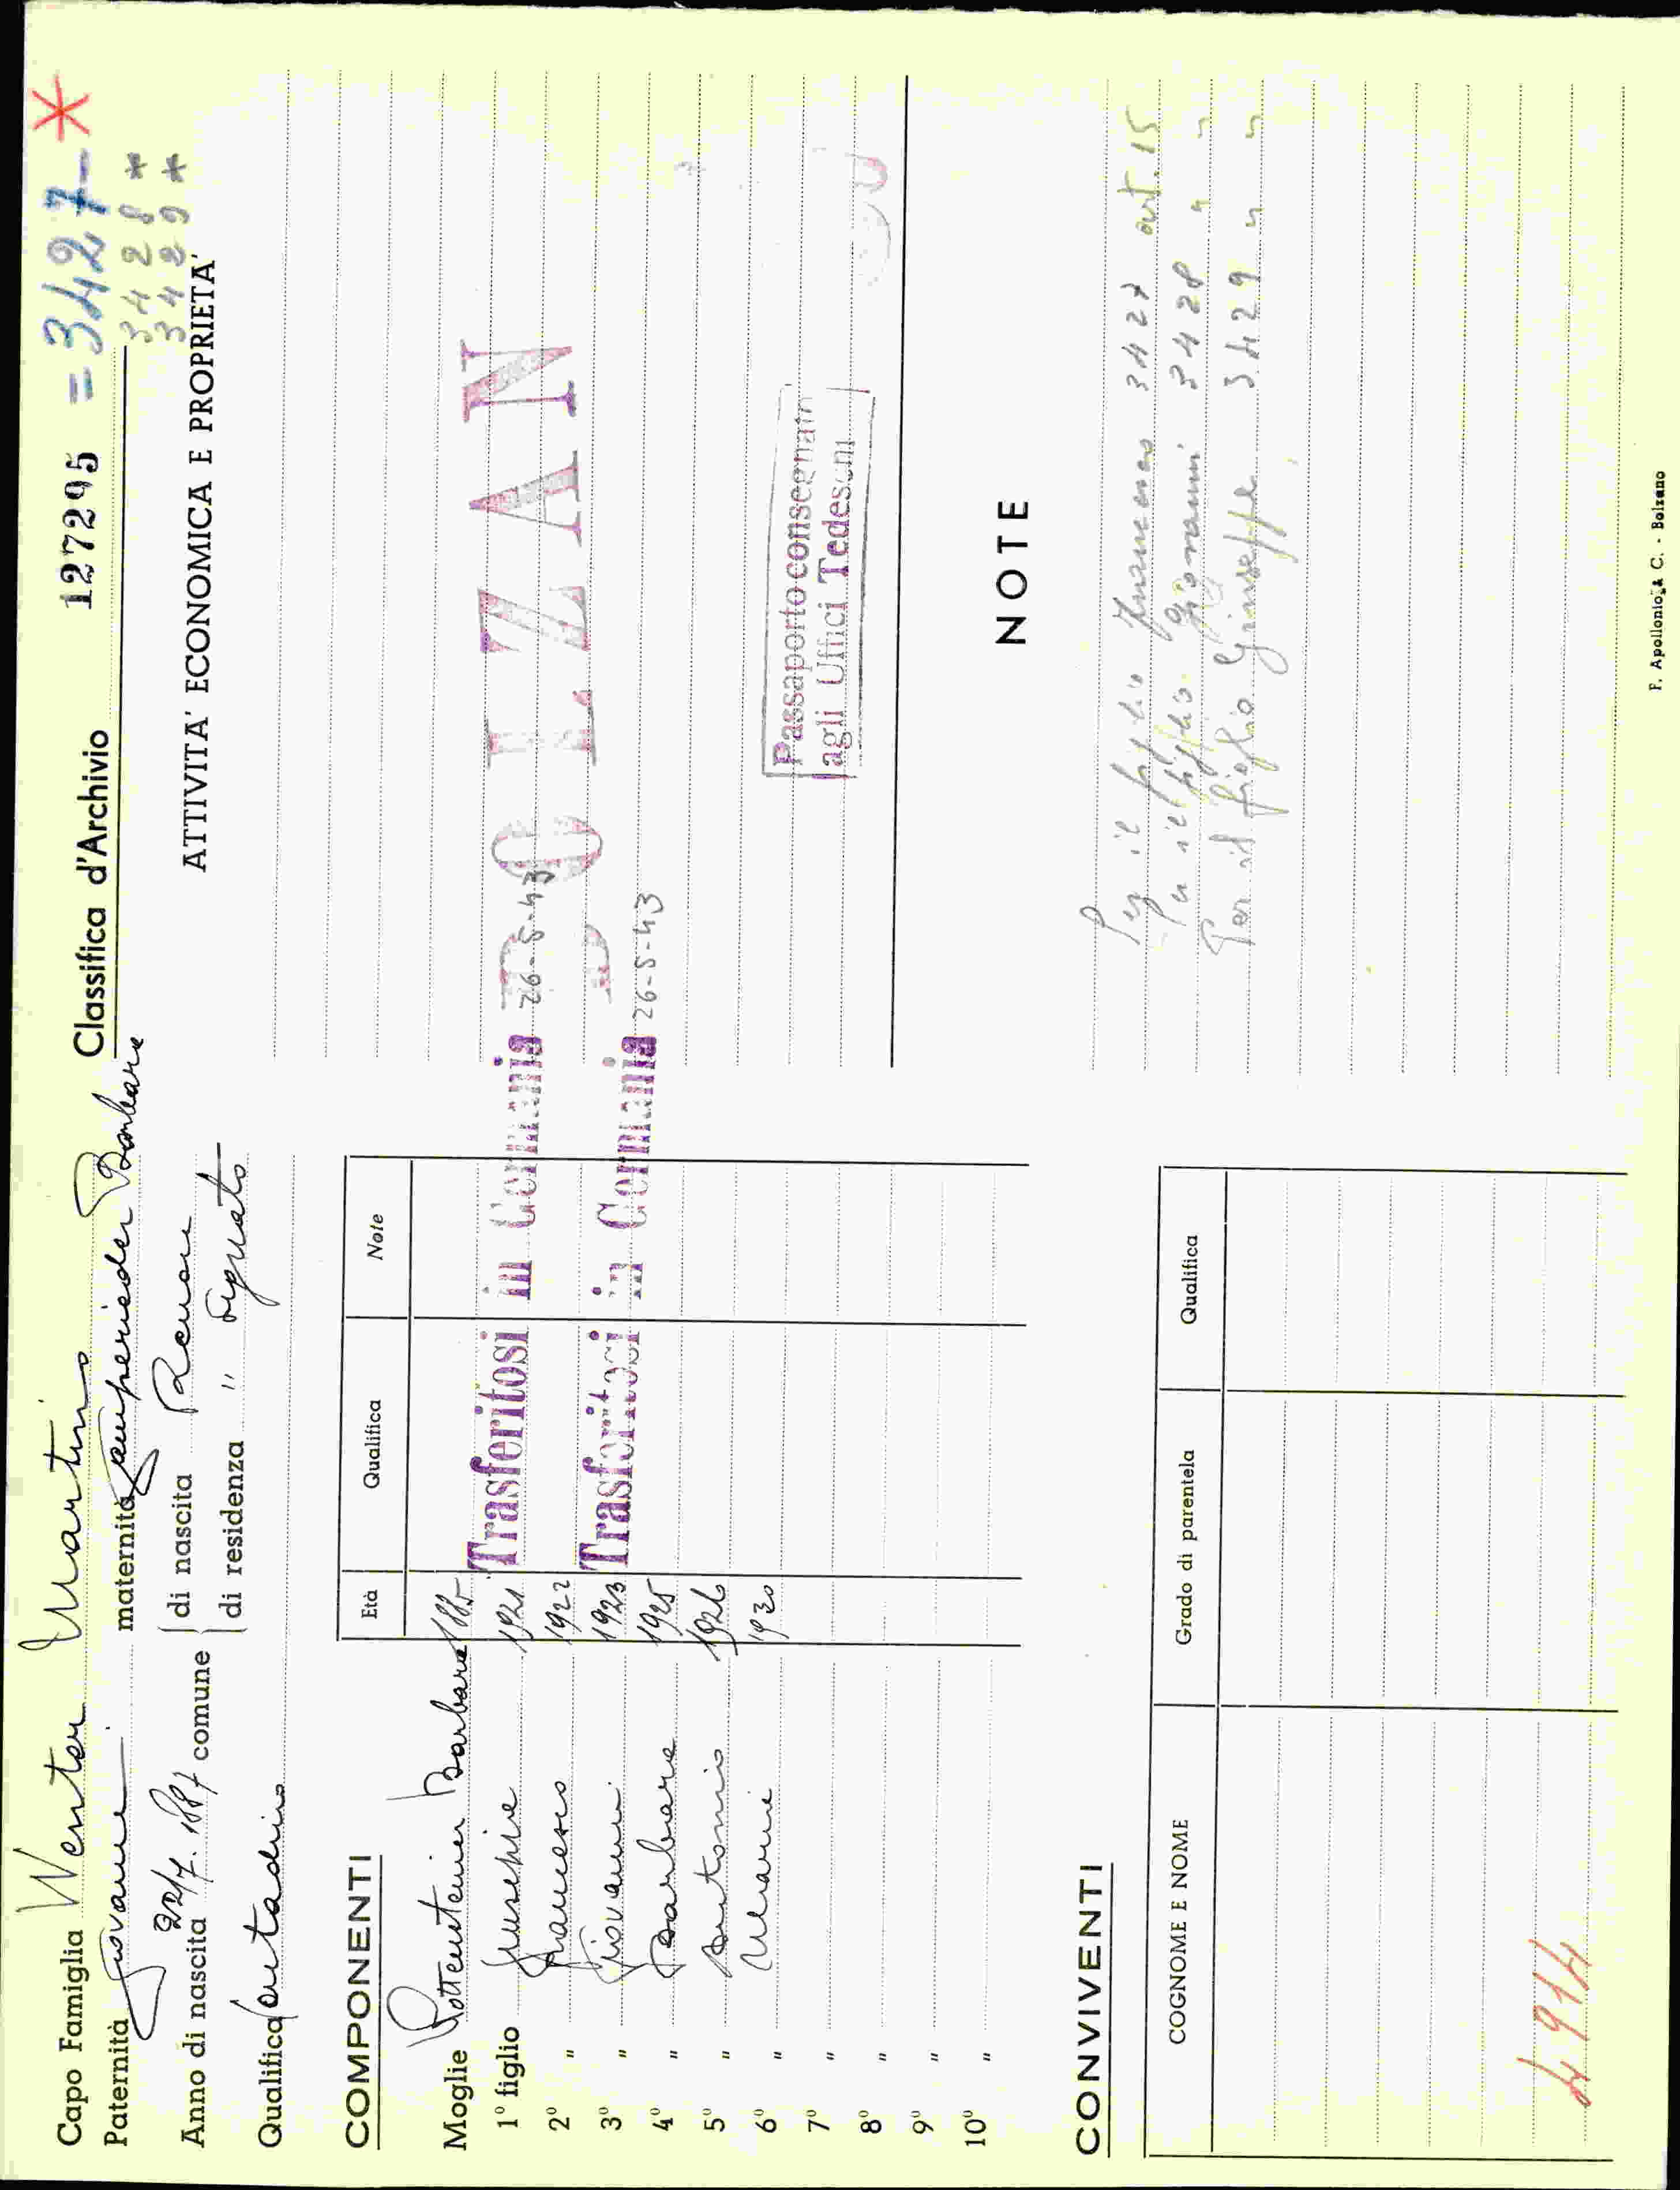 Capo Famiglia Wenter Martino
Classifica d'Archivio 127295 = 3427 *
Paternità Giovanni maternità Gamperieder Barbara
3428 *
3429 *
Anno di nascita 22/7. 1887 comune di nascita Renon
di residenza " Signato
Qualifica Contadino
ATTIVITA' ECONOMICA E PROPRIETA'
COMPONENTI
Età Qualifica Note
Moglie Rottensteiner Barbara 1885
1° figlio Giuseppe 1921
2° " Francesco 1922
3° " Giovanni 1923
4° " Barbara 1925
5° " Antonio 1926
6° " 1930
7° "
8° "
9° "
10° "
Trasferitosi in Germania 26-5-43
Trasferitosi in Germania 26-5-43
BOLZAN
Passaporto consegnato
agli Uffici Tedeschi
NOTE
Per il figlio Francesco 3427 art. 15
Per il figlio Giovanni 3428 " "
Per il figlio Giuseppe 3429 " "
CONVIVENTI
COGNOME E NOME Grado di parentela Qualifica
4914
F. Apollonio & C. - Bolzano